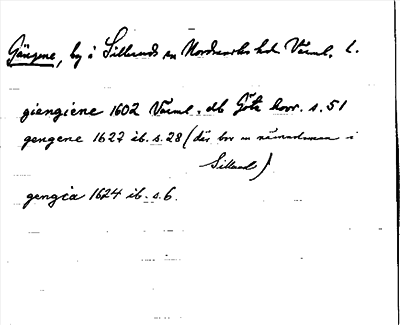 Gängene, by i Sillerud sn Nordmarks hd. Värml. l.
giengiene 1602 Värml. db Göta hovr. s. 51
gengene 1627 ib. s. 28 (där bor en nämndeman i
Sillerud)
gengia 1624 ib. s. 6.